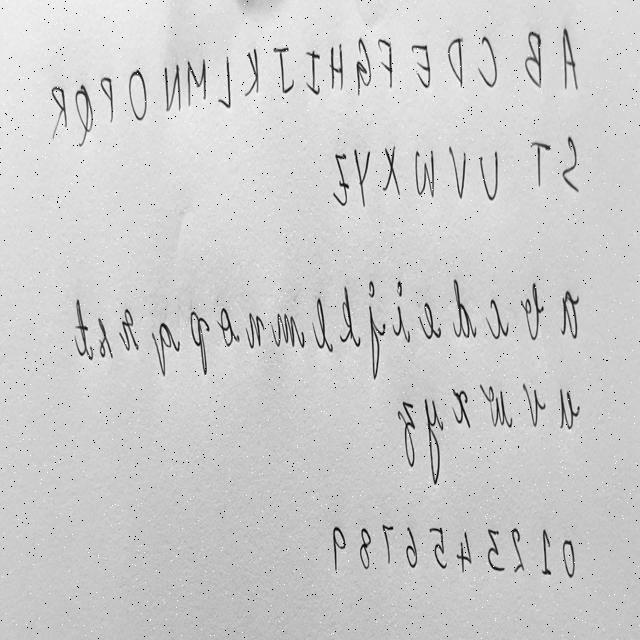 A B C D E F G H I J K L M N O P Q R
S T U V W X Y Z
a b c d e i j k l m n o p q r s t
u v w x y z
0 1 2 3 4 5 6 7 8 9